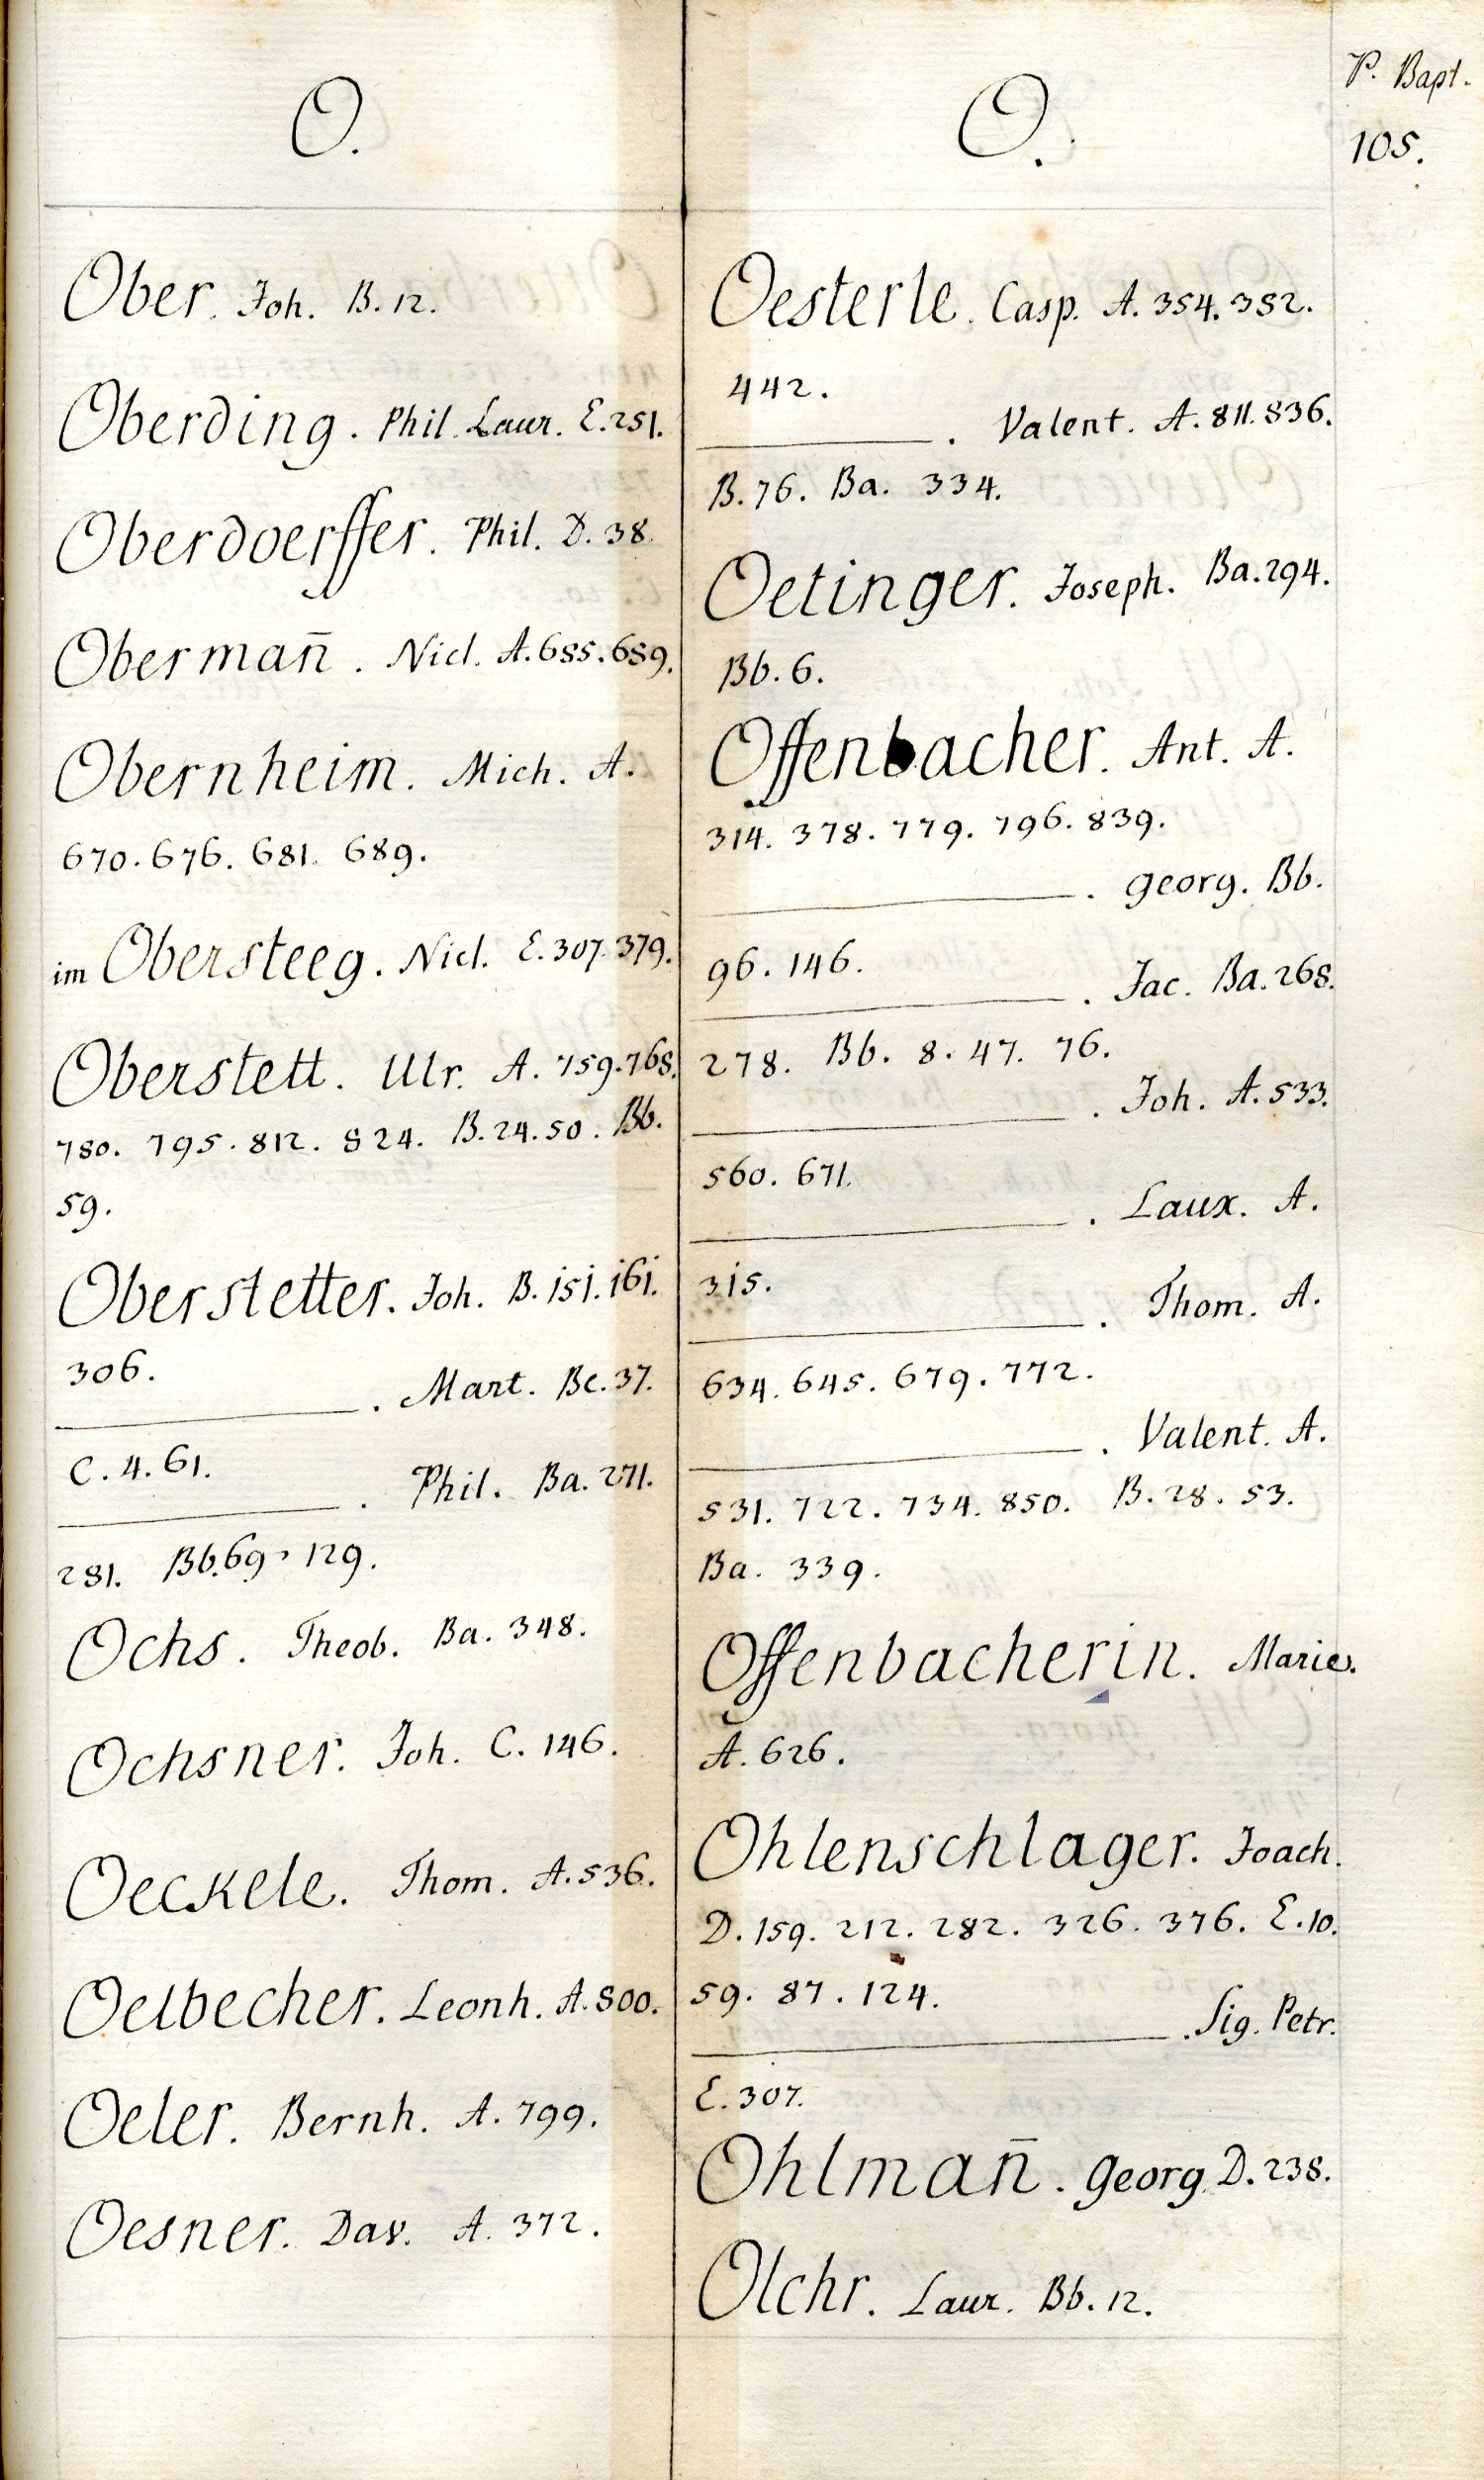 P. Bapt.
105.
O.
Ober. Joh. B. 12.
Oberding. Phil. Laur. E. 251.
Oberdoerffer. Phil. D. 38.
Obermañ. Nicl. A. 685. 689.
Obernheim. Mich. A.
670. 676. 681. 689.
im Obersteeg. Nicl. E. 307. 379.
Oberstett. Ulr. A. 759. 768.
780. 795. 812. 824. B. 24. 50. Bb.
59.
Oberstetter. Joh. B. 151. 161.
306.
———. Mart. Bc. 37.
C. 4. 61.
———. Phil. Ba. 271.
281. Bb. 69. 129.
Ochs. Theob. Ba. 348.
Ochsner. Joh. C. 146.
Oeckele. Thom. A. 536.
Oelbecher. Leonh. A. 800.
Oeler. Bernh. A. 799.
Oesner. Dav. A. 372.
O.
Oesterle. Casp. A. 354. 382.
442.
———. Valent. A. 811. 836.
B. 76. Ba. 334.
Oetinger. Joseph. Ba. 294.
Bb. 6.
Offenbacher. Ant. A.
314. 378. 779. 796. 839.
———. Georg. Bb.
96. 146.
———. Jac. Ba. 268.
278. Bb. 8. 47. 76.
———. Joh. A. 533.
560. 671.
———. Laux. A.
315.
———. Thom. A.
634. 645. 679. 772.
———. Valent. A.
531. 722. 734. 850. B. 28. 53.
Ba. 339.
Offenbacherin. Marie.
A. 626.
Ohlenschlager. Joach.
D. 159. 212. 282. 326. 376. E. 10.
59. 87. 124.
———. Sig. Petr.
E. 307.
Ohlmañ. Georg. D. 238.
Olchr. Laur. Bb. 12.